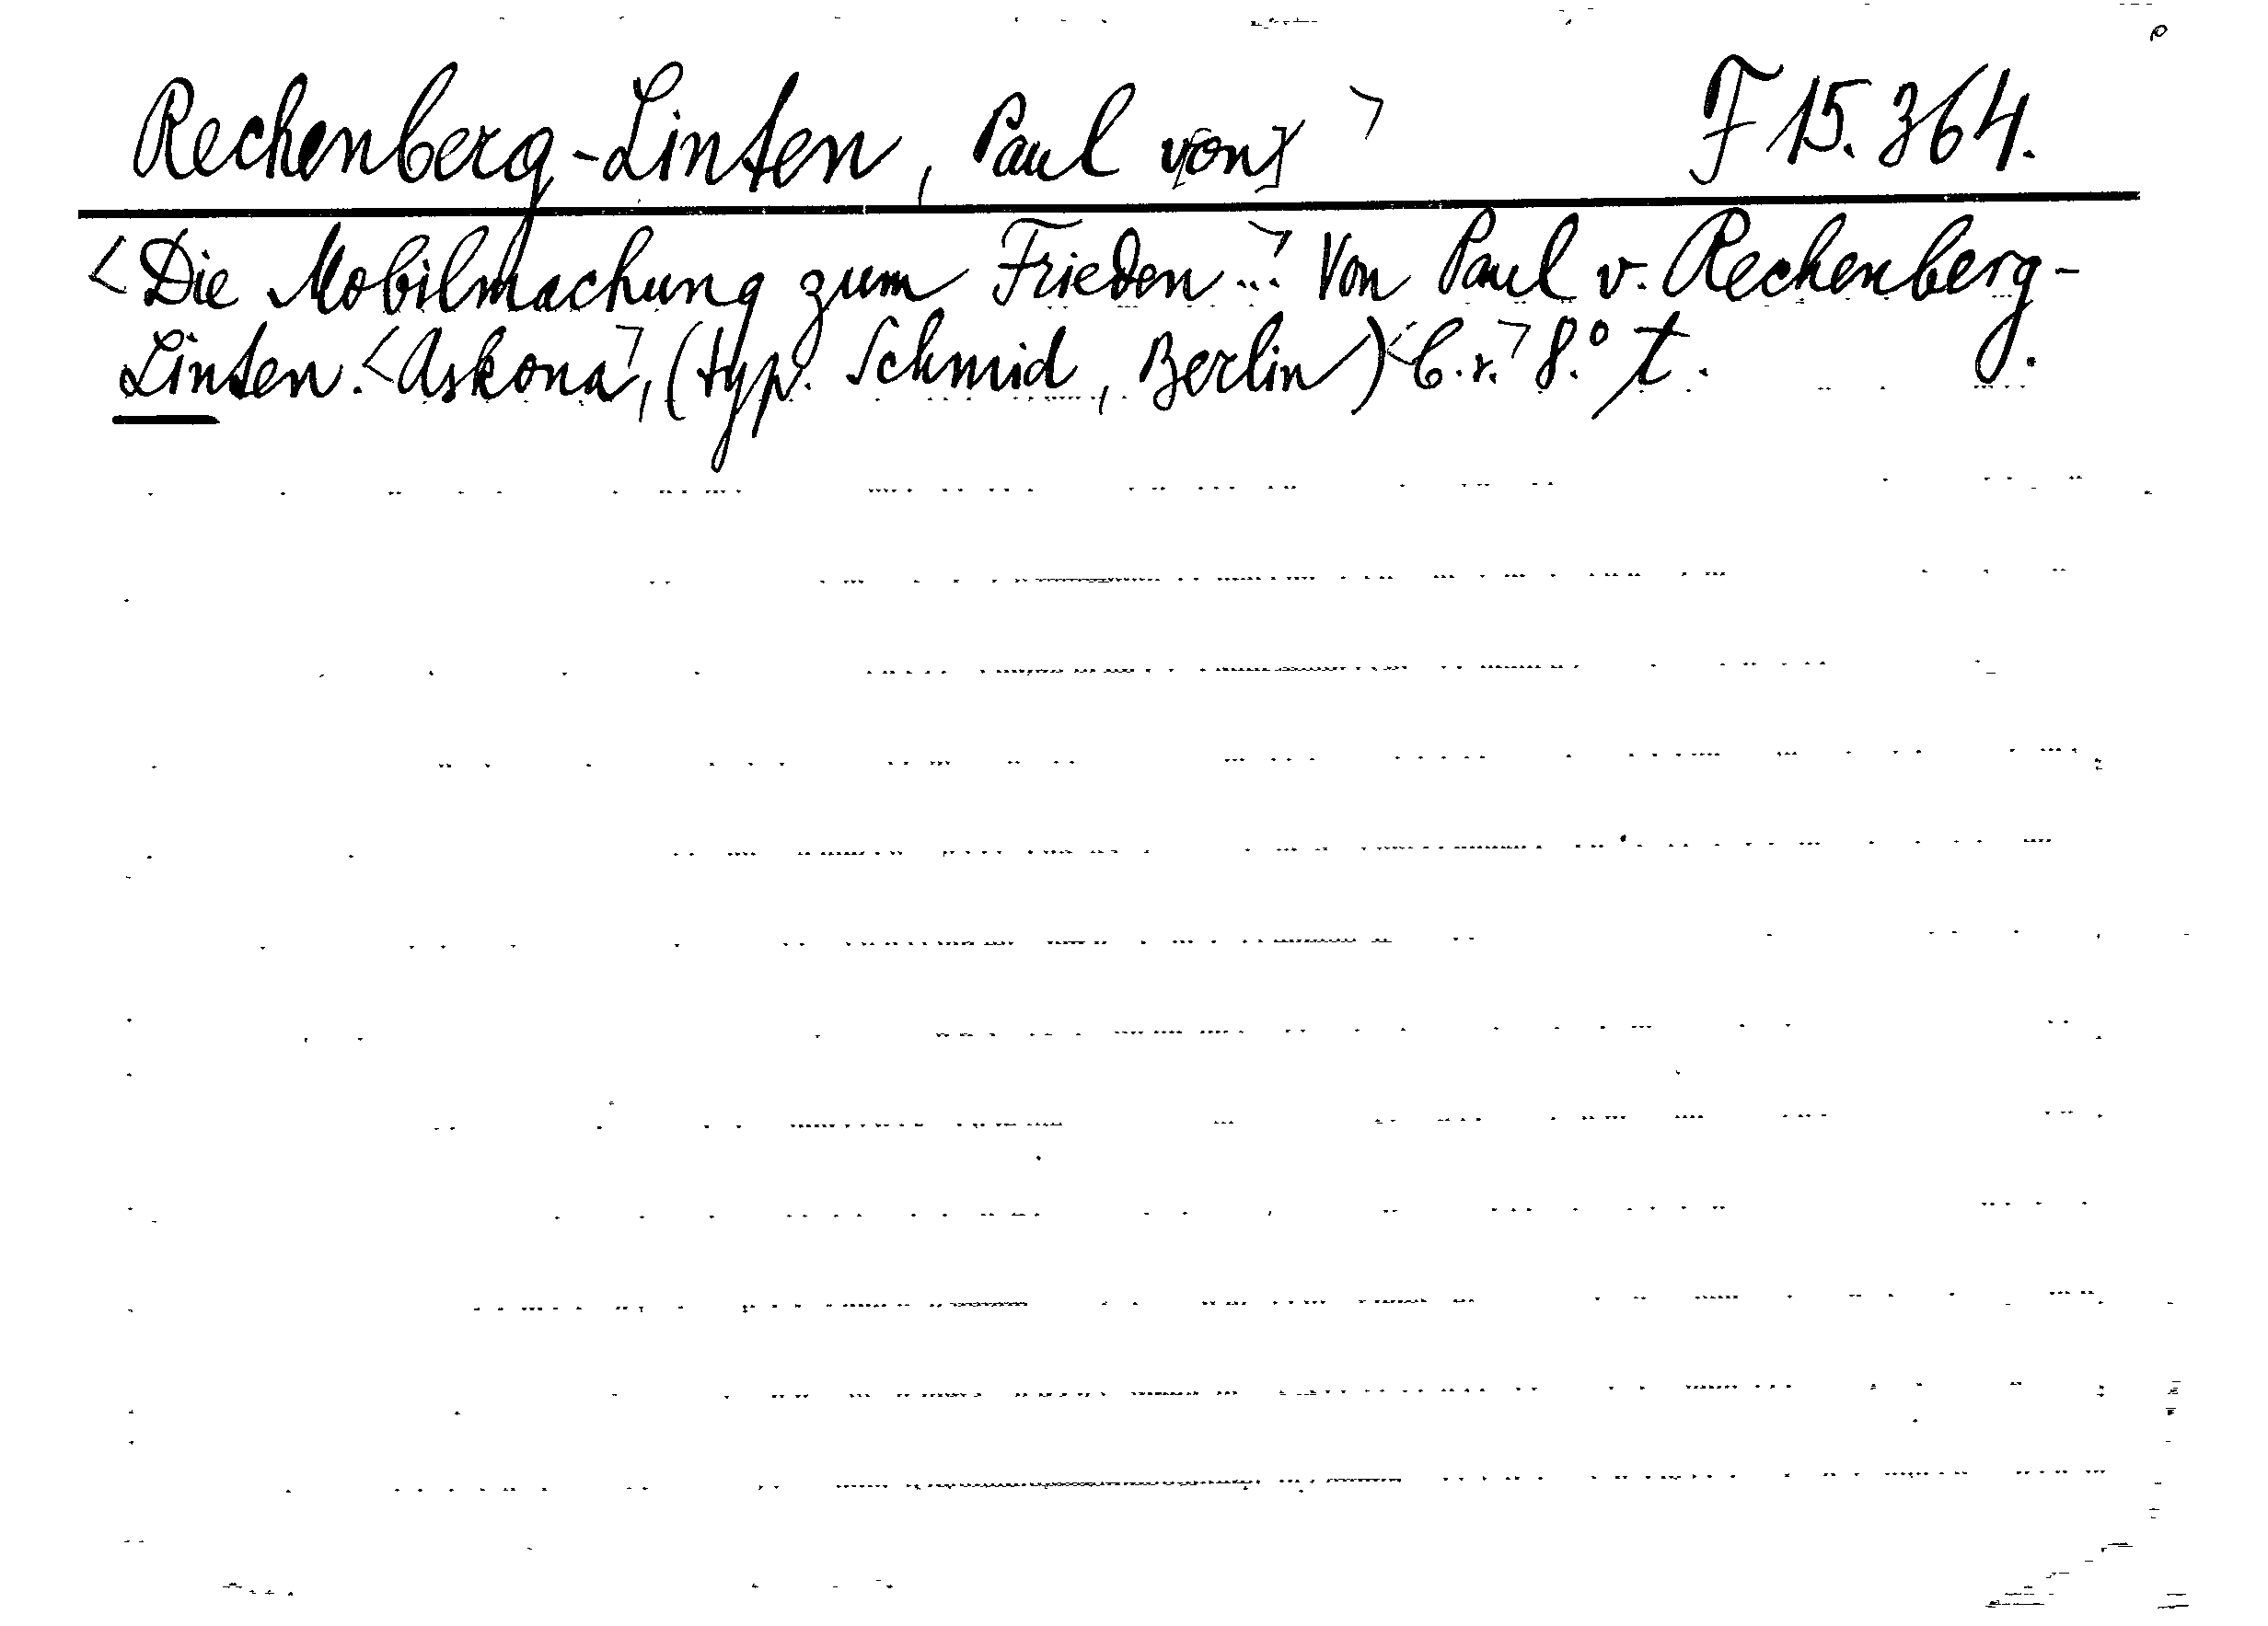 Rechenberg-Linten, Paul von] ┐ F 15.364.
<Die Mobilmachung zum Frieden...┐ Von Paul v. Rechenberg-
Linten. <Askona┐, (typ. Schmid, Berlin) <C.r.┐ 8.° t.